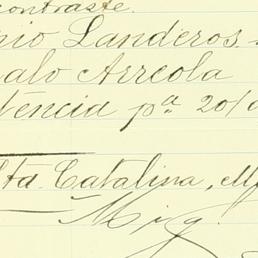 contraste.
nio Landeros
alo Arreola
tência pª 20/
Sta. Catalina, M
Mig.